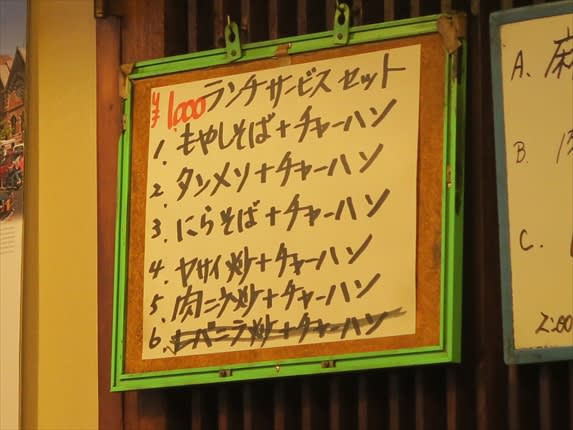 ¥1,000 ランチサービスセット
1. もやしそば+チャーハン
2. タンメン+チャーハン
3. にらそば+チャーハン
4. ヤサイ炒+チャーハン
5. 肉ニラ炒+チャーハン
6. レバニラ炒+チャーハン
A. 麻
B.
C.
2:00